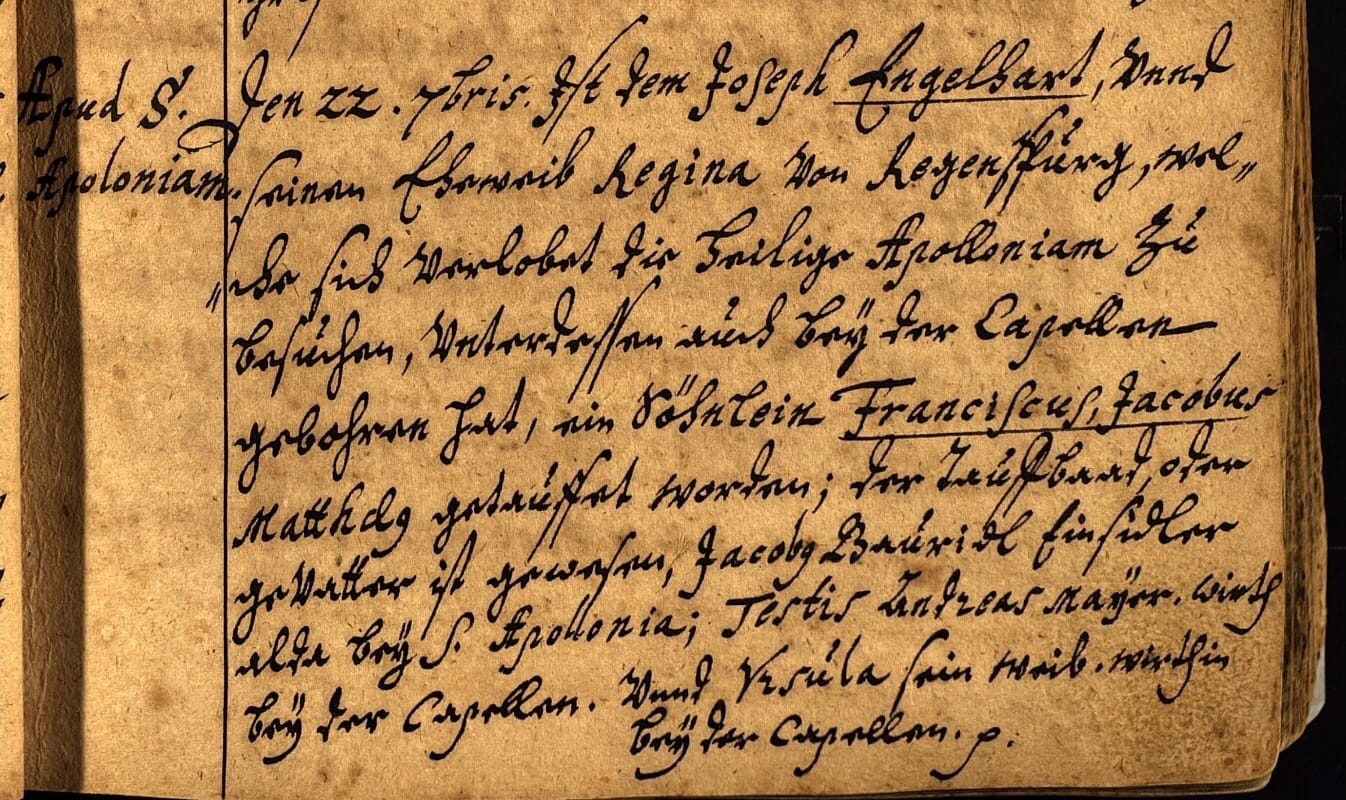 Apud S.
Apoloniam.
Den 22. 7bris. Ist dem Joseph Engelhart, Vnnd
seinen Eheweib Regina Von Regenspürg, wel„
„che sich Verlobet die heilige Apolloniam Zü
besüchen, Vnterdessen aüch beÿ der Capellen
gebohren hat, ein Söhnlein Franciscus, Jacobus
Matthæ9 getaüffet worden; der Taüffbaad, oder
geVatter ist gewesen, Jacob9 Baüridl Einsidler
alda beÿ S. Apolonia; Testis Andreas Maÿer. wirth
beÿ der Capellen. Vnnd Vrsüla sein weib. wirthin
beÿ der Capellen. p.